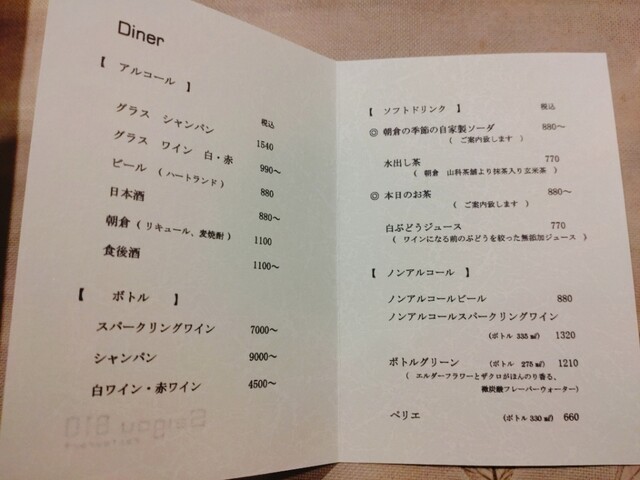 Diner
【 アルコール 】
税込
グラス シャンパン 1540
グラス ワイン 白・赤 990～
ビール （ハートランド） 880
日本酒 880～
朝倉（リキュール、麦焼酎） 1100
食後酒 1100～
【 ボトル 】
スパークリングワイン 7000～
シャンパン 9000～
白ワイン・赤ワイン 4500～
【 ソフトドリンク 】 税込
◎ 朝倉の季節の自家製ソーダ 880～
（ ご案内致します ）
水出し茶 770
（ 朝倉 山科茶舗より抹茶入り玄米茶 ）
◎ 本日のお茶 880～
（ ご案内致します ）
白ぶどうジュース 770
（ワインになる前のぶどうを絞った無添加ジュース ）
【 ノンアルコール 】
ノンアルコールビール 880
ノンアルコールスパークリングワイン
（ボトル 335 ㎖） 1320
ボトルグリーン （ボトル 275 ㎖） 1210
（ エルダーフラワーとザクロがほんのり香る、
微炭酸フレーバーウォーター）
ペリエ （ボトル 330 ㎖） 660